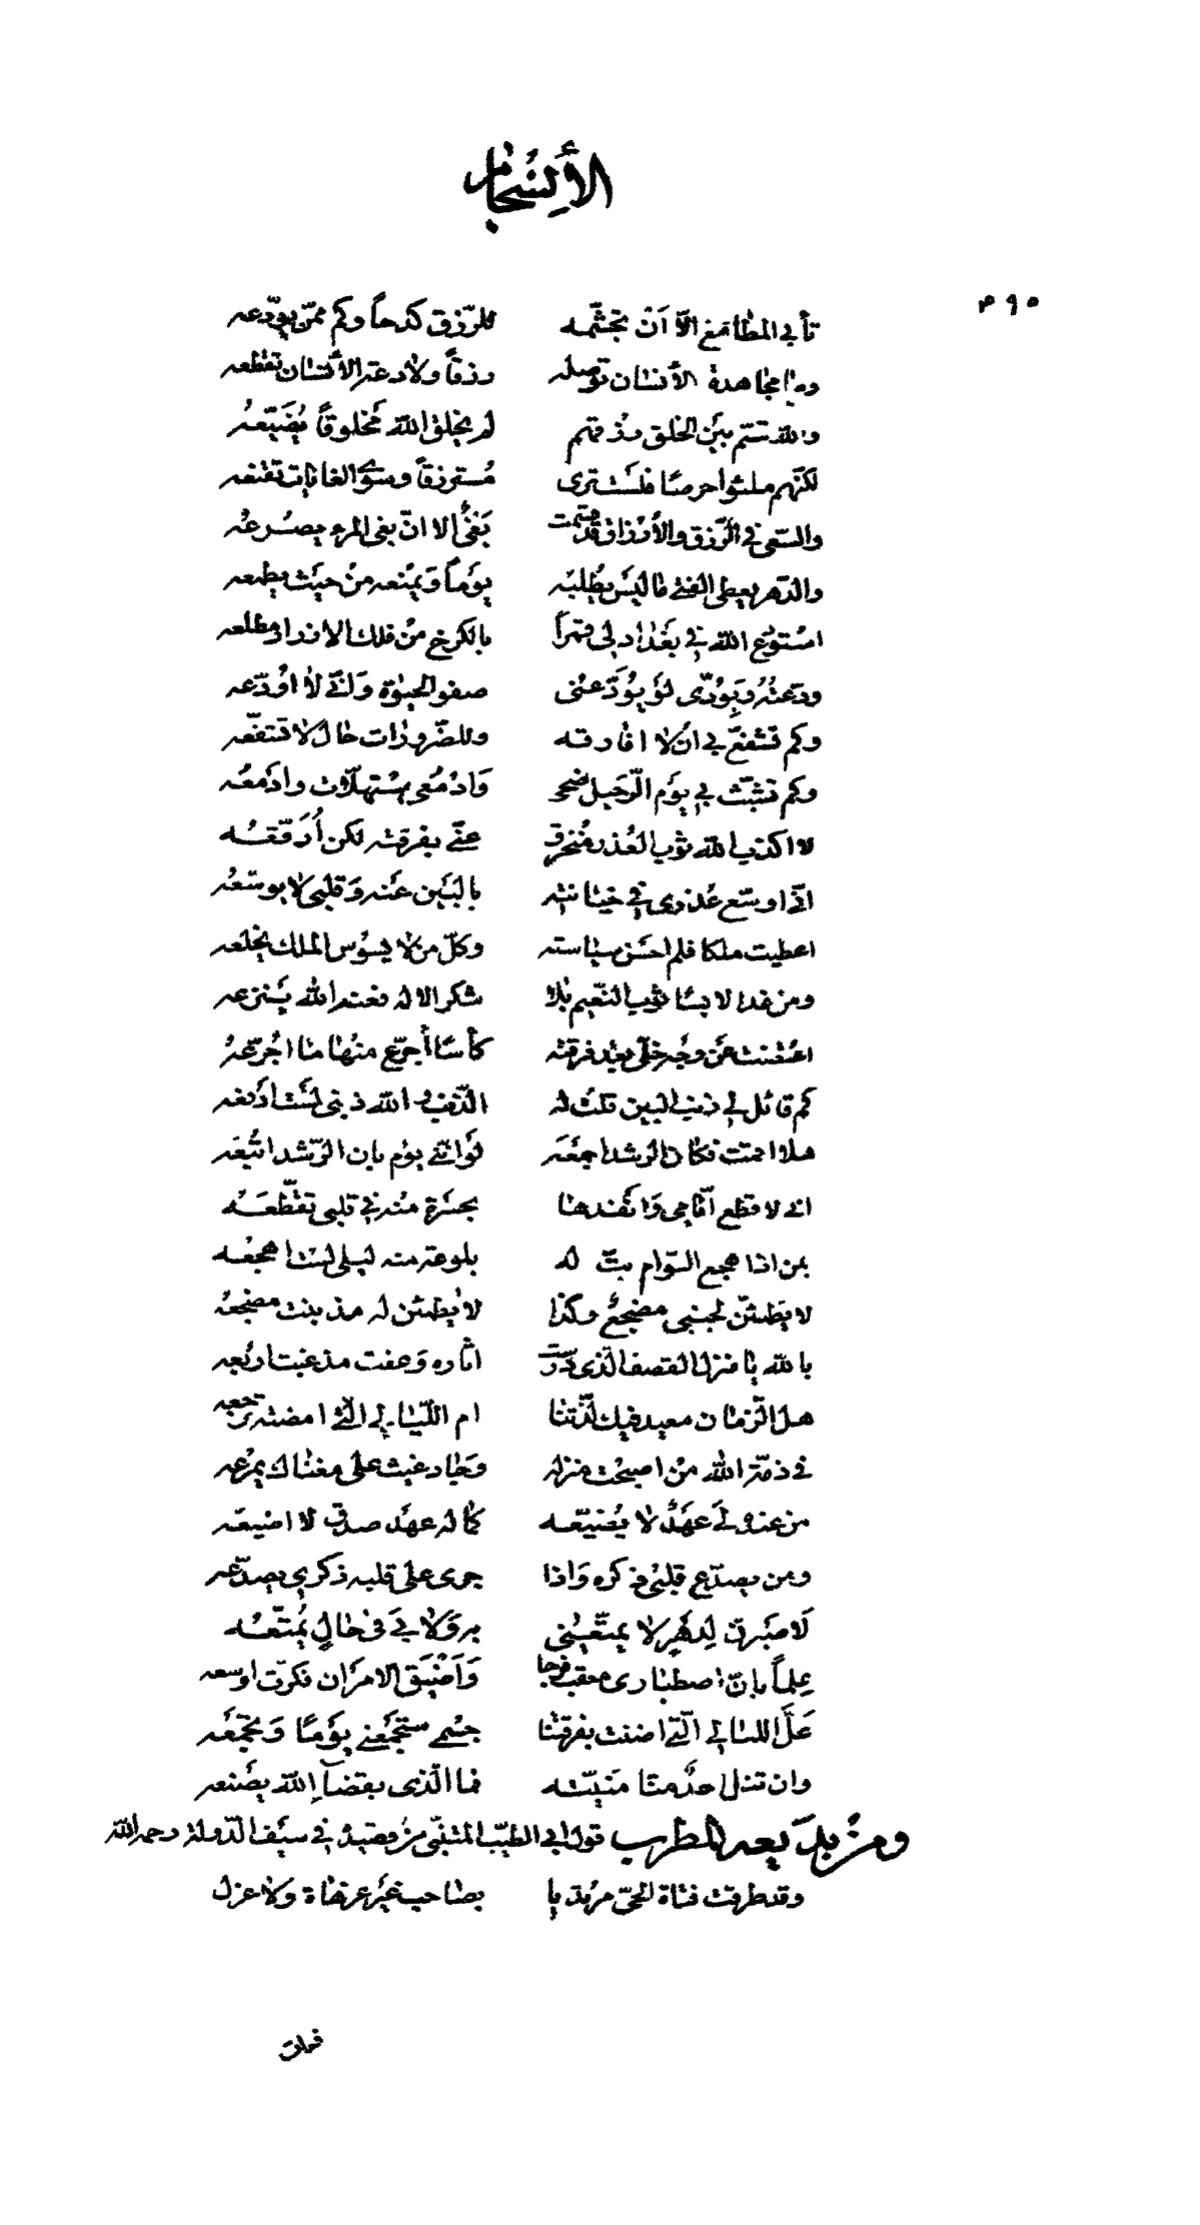 الأنسجام
٤٩٥
تأبى المطامع الّا اَنْ تجشّمه للرّزق كدحاً وكم ممّن يودّعه
وما مجاهدة الأنسان توصله رزقاً ولا دعة الأنسان تقطعه
والله قسّم بيَن الخلق رزقهم لم يخلق الله مخلوقاً يُضَيّعهُ
لكنّهم ملئوا حرصا فلسْت ترى مُسترزقاً وسوى الغايات تقنعه
والسّعى في الرّزق والأرزاق قد قسمت بَغْىٌ الا انّ بغى المرء يصْرعهُ
والدّهر يعطى الفتى ما ليْسَ يطْلبه يوْماً وَيمْنعه منْ حيْث يطمعه
استودع الله في بغْداد لى قمراً بالكرخ منْ فلك الازرار مطلعه
ودعتهُ وبودّى لوْ يُوَدّعنى صفو الحيٰوة وَانّى لا اُودّعه
وكم تشفّع بى ان لا افارقه وللضّرورات حال لا تشفّعه
وكم تشبّث بى يوْم الرّحيل ضحى وَادْمُعى مسْتهلّات وادْمعُه
لا اكذب الله ثوب العُذر منْخرق عنّى بفرقته لكن اُرَقّعُه
انّى اوسّع عذرى في خيانته بالبيَن عنه وَقلبى لا يوسّعُه
اعطيت ملكا فلم احسن سياسته وكلّ من لا يسوْس الملك يخلعه
ومن غدا لابسا ثوب النّعيم بلا شكر الاله فعند الله يَنزعه
اعْتضت عَن وجْه خلّى بعْد فرقته كأسا أجرّع منْها ما اُجرّعهُ
كم قائل لى ذنب البين قلت له الذّنب والله ذنبى لسْت ادْفعه
هلا اقمت فكان الرشد اجمعَه لوْ انّنى يوْم بان الرّشد اتْبعَه
انى لا قطع ايّامى وَانْفدها بحسْرة منْه في قلبى تقطّعَه
بمن اذا هجع النّوّام بتّ له بلوعة منه ليْلى لسْت اهجعه
لا يَطمئنّ لجنبى مضجعٌ وكذا لا يَطمئن له مذ بنت مضجعُه
بالله يا منزل القصف الّذى درست اٰثاره وَعفت مذ غبت اربُعه
هل الزّمان معيد فيك لذّتنا ام اللّيالى الّتى امضته ترجعه
فى ذمّة الله منْ اصبحْت منزله وَجاد غيث على مغناك يمْرعه
من عنده لى عهْدٌ لا يُضيّعه كما له عهْد صدق لا اضيعَه
ومن يصدّع قلبْى ذكره وَاذا جرى على قلبه ذكرى يصدّعه
لَاصْبرنّ لِدهْرٍ لا يمتّعنى به وَلا بى فى حالٍ يُمتّعُه
علماً بانّ اصطبارى معقب فرجا وَاَضْيَق الامر ان فكرّت اوسعه
عَلَّ الليالى الّتى اضنت بفرقتنا جسْمى ستجمَعنى يوْمًا وَتجمَعَه
وان تنل احدٌ منا منيّته فما الّذى بقضآء الله يصْنعه
ومنْ بديعه المطرب قول ابى الطيّب المتنبّى منْ قصيدة في سيْف الدّولة رحمه الله
وقد طرقت فتاة الحىّ مرْتديا بصاحب غيْر عزهاة ولا غزل
فبات